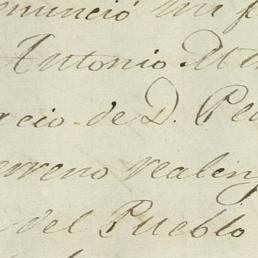 enunció mi
Antonio
acio de D. Pe
erreno realeng
del Pueblo